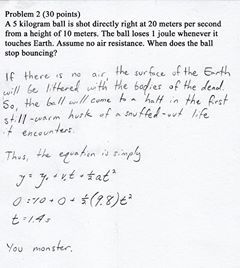 Problem 2 (30 points)
A 5 kilogram ball is shot directly right at 20 meters per second
from a height of 10 meters. The ball loses 1 joule whenever it
touches Earth. Assume no air resistance. When does the ball
stop bouncing?
If there is no air, the surface of the Earth
will be littered with the bodies of the dead.
So, the ball will come to a halt in the first
still-warm husk of a snuffed-out life
it encounters.
Thus, the equation is simply
y = y₀ + v₀t + ½at²
0 = 10 + 0 + ½(9.8)t²
t = 1.4s
You monster.